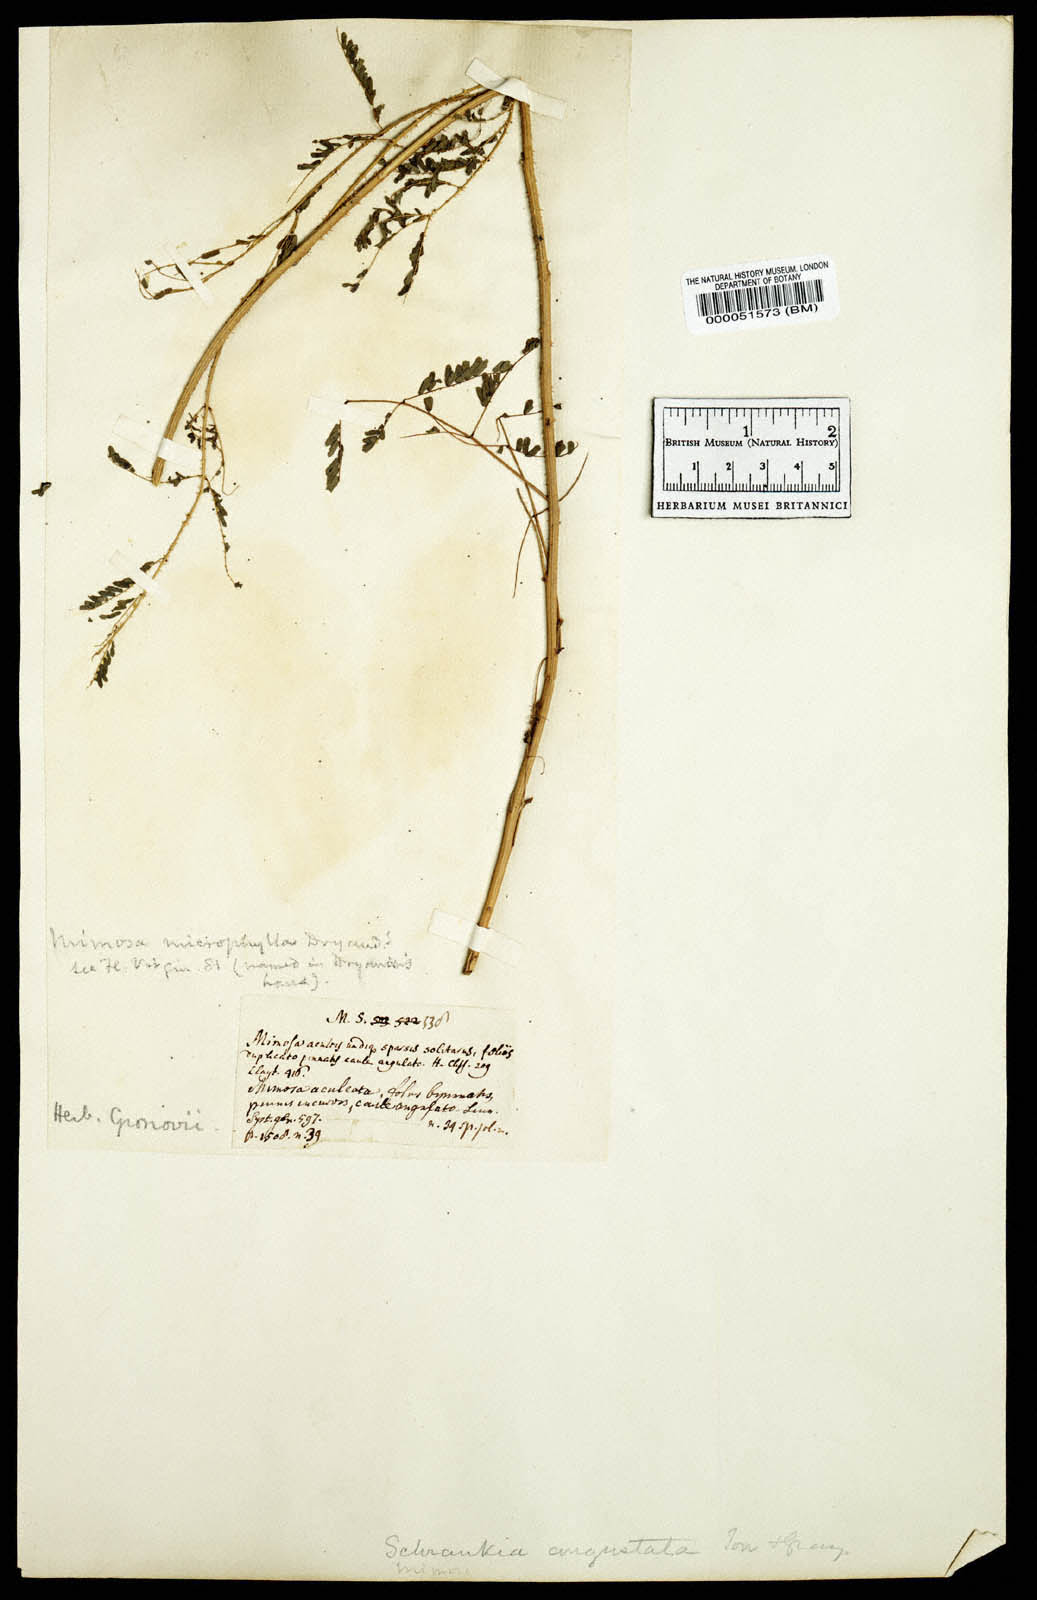 THE NATURAL HISTORY MUSEUM, LONDON
DEPARTMENT OF BOTANY
000051573 (BM)
1 2
BRITISH MUSEUM (NATURAL HISTORY)
1 2 3 4 5
HERBARIUM MUSEI BRITANNICI
Mimosa microphylla Dryand.!
see Fl. Virgin. 81 (named in Dryander's
hand).
M. S. 522 538
Mimosa aculeis undiq sparsis solitariis, foliis
duplicato pinnatis caule angulato. H. Cliff. 209
Clayt. 418.
Mimosa aculeata, foliis bipinnatis,
pinnis incurvis, caule angulato. Linn.
Syst. gen. 597.
n. 34. sp. pl.
p. 1508. n. 39
Herb. Gronovii.
Schrankia angustata Torr & Gray.
Mimos